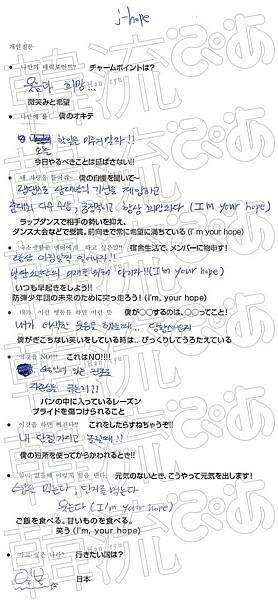 j-hope
개인질문
• 나만의 매력포인트? チャームポイントは?
웃음과 희망...
微笑みと希望
• 나만에 룰 僕のオキテ
오늘 할일은 미루지말자!!
今日やるべきことは延ばさない!!
• 내 자랑을 들어줘~ 僕の自慢を聞いて~
랩댄스로 상대방의 기선을 제압하고
춤대회 다수 수상, 긍정적이고 항상 희망차다 (I'm your hope)
ラップダンスで相手の勢いを抑え、
ダンス大会などで受賞。前向きで常に希望に満ちている (I'm your hope)
• 숙소생활중 멤버에게 하고 싶은말!! 宿舎生活で、メンバーに物申す!
항상 아침일찍 일어나자!!
방탄소년단의 미래를 위해 달리자!!(I'm your hope)
いつも早起きをしよう!!
防弾少年団の未来のために突っ走ろう! (I'm, your hope)
• 내가 이런 행동을 하면 이런 뜻 僕が〇〇するのは、〇〇ってこと!
내가 어색한 웃음을 했을때.. 당황
僕がぎこちない笑いをしている時は.. びっくりしてうろたえている
• 이것은 NO!!! これはNO!!!!
빵속에 있는 건포도
자존심 긁는거
パンの中に入っているレーズン
プライドを傷つけられること
• 이것을 하면 삐친다? これをしたらすねちゃうぞ!!
내 단점가지고 놀릴때!!
僕の短所を使ってからかわれるとき!!
• 힘이 없을때 이렇게 힘을 낸다. 元気のないとき、こうやって元気を出します!
밥을 먹는다, 단거를 먹는다
웃는다 (I'm your hope)
ご飯を食べる。甘いものを食べる。
笑う (I'm your hope)
• 가고 싶은 나라? 行きたい国は?
일본 日本
韓流ぴあ
Han ryu